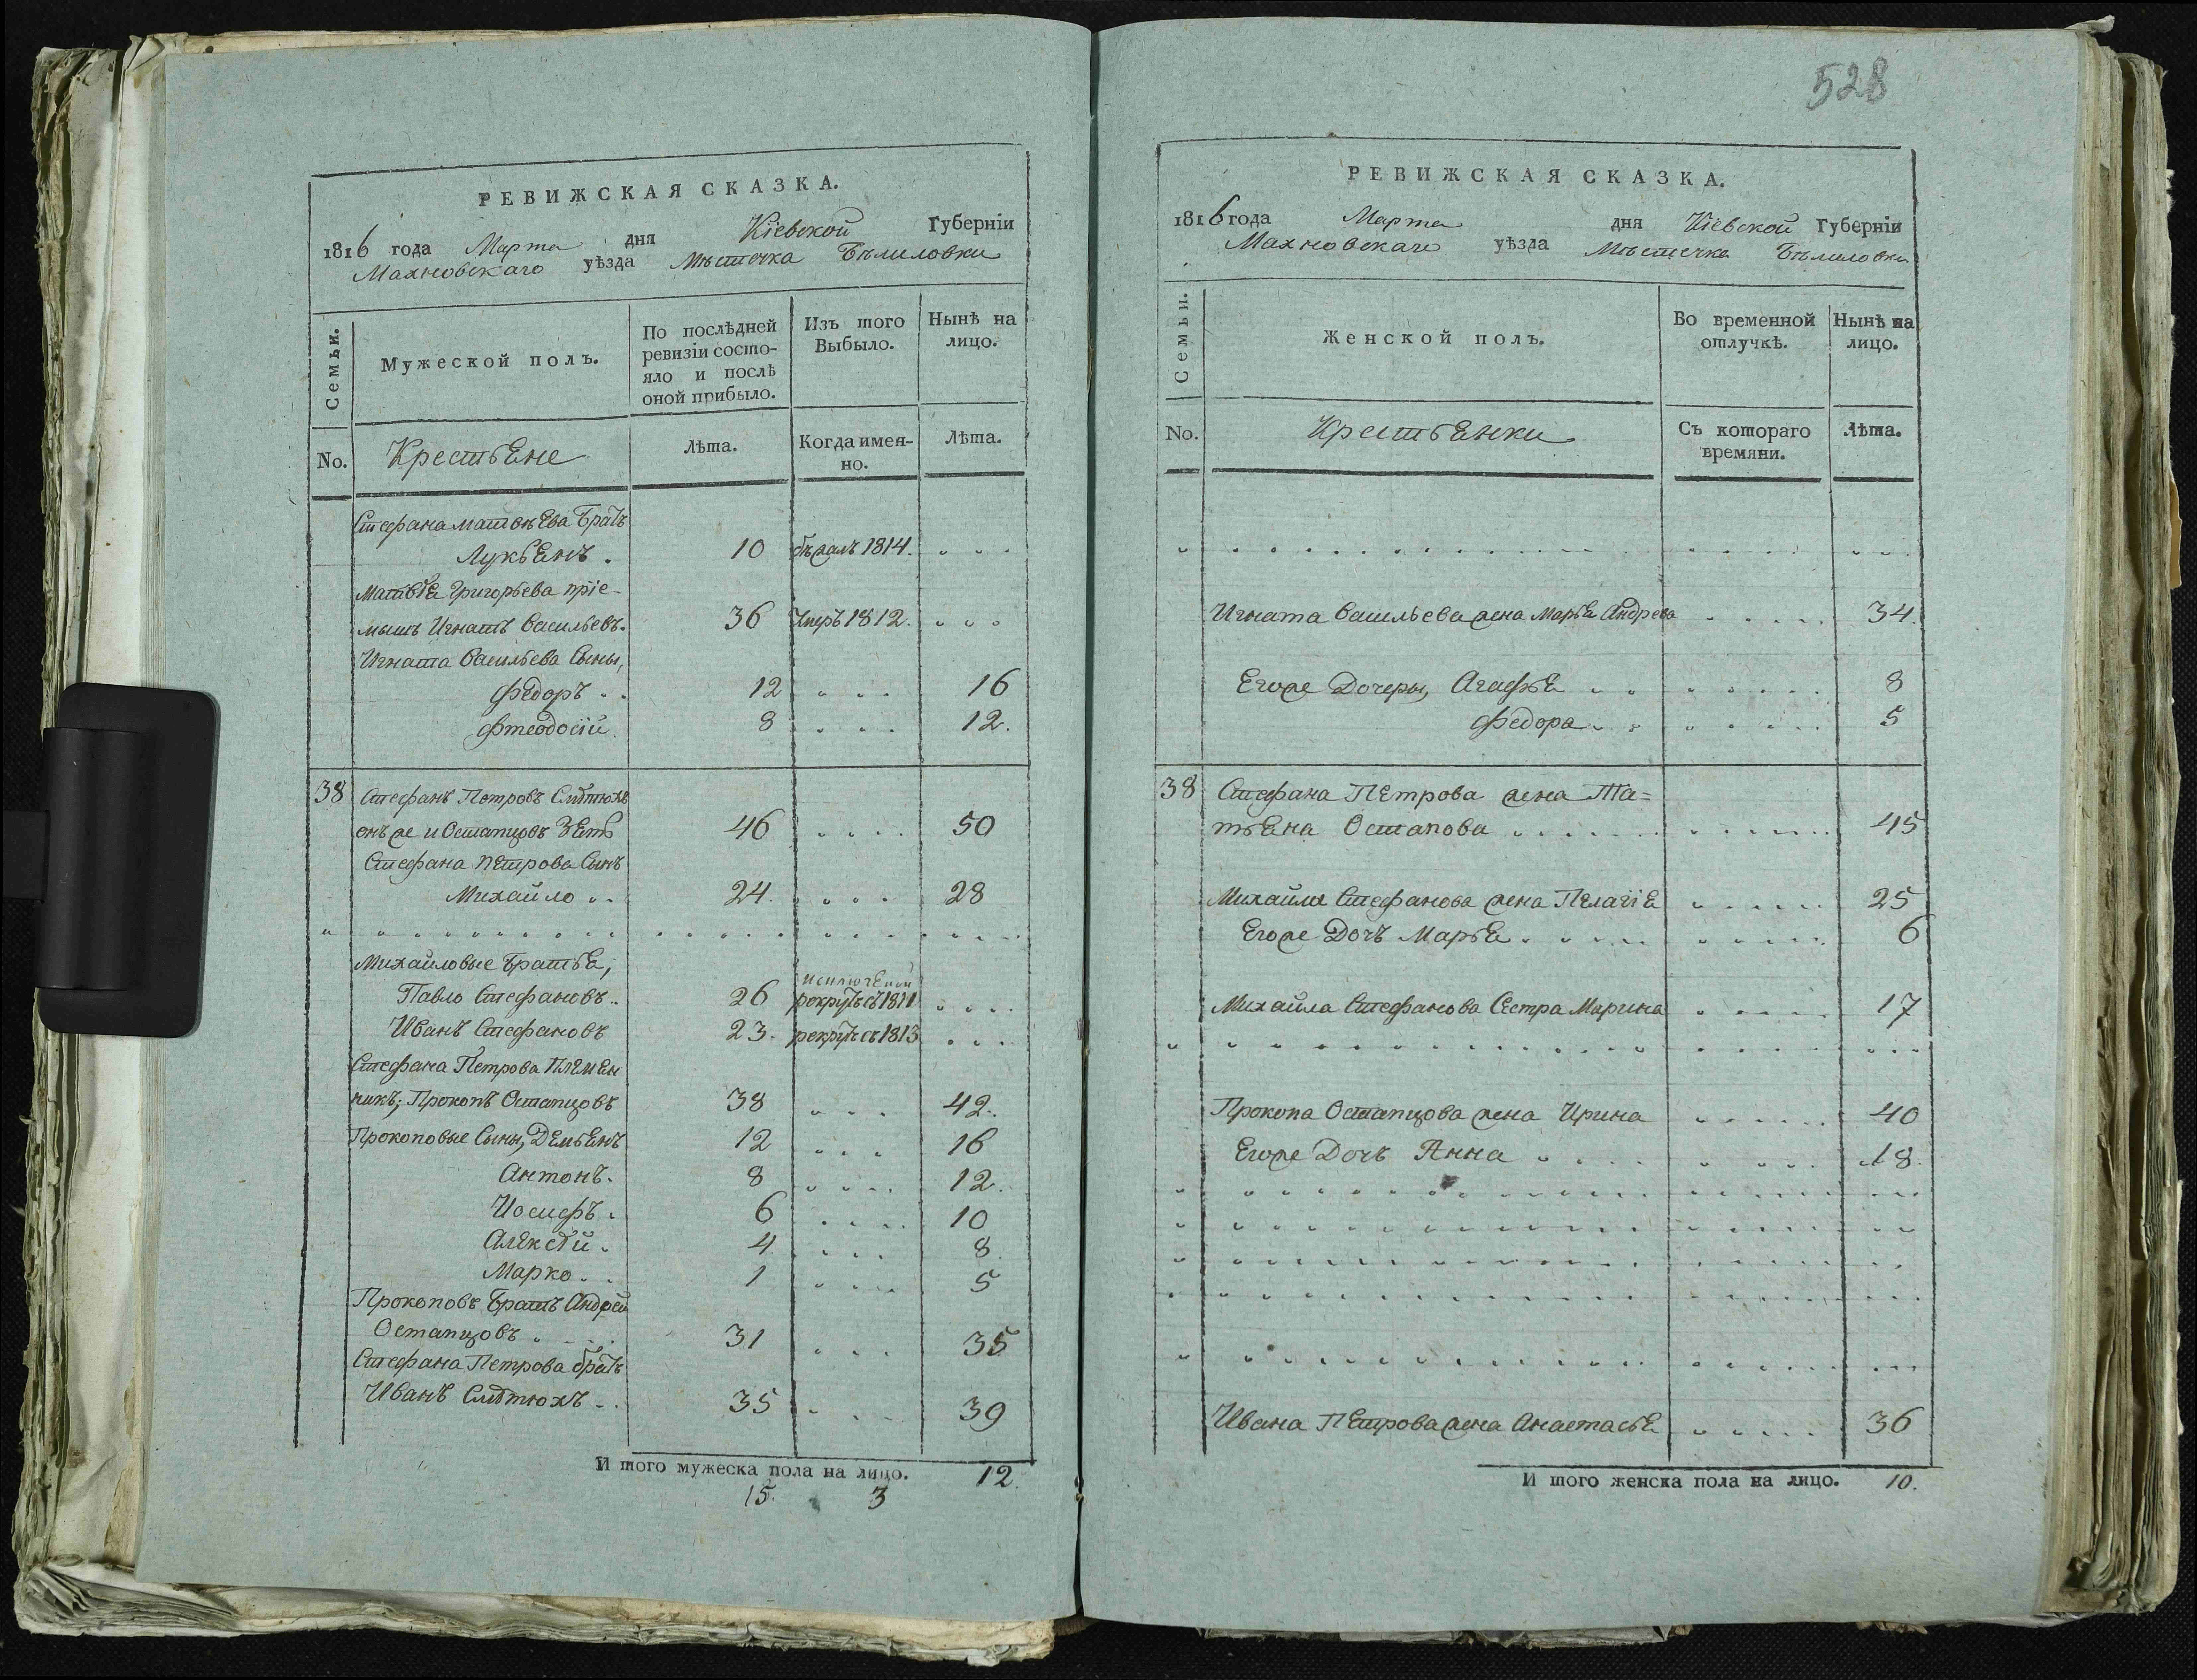 РЕВИЖСКАЯ СКАЗКА.
1816 года Марта дня Кіевской Губерніи
Махновскаго уѣзда Мѣстечка Бѣлиловки
Семьи.
Мужеской полъ.
По послѣдней ревизіи состо-
яло и послѣ
оной прибыло.
Изъ того
Выбыло.
Нынѣ на
лицо.
No.
Крестьяне
Лѣта.
Когда имен-
но.
Лѣта.
Стефана Матвѣева Братъ
Лукьянъ. 10 бѣжалъ 1814.
Матвѣя Григорьева пріе-
мышъ Игнатъ Васильевъ. 36 Умеръ 1812.
Игната Васильева Сыны,
Федоръ 12 16
Фтеодосій 8 12.
38 Стефанъ Петровъ
онъ же и Остапцовъ Зять 46 50
Стефана Петрова Сынъ
Михайло 24. 28
Михайловые Братья,
исключеной
Павло Стефановъ 26 рекрутъ съ 1811
Иванъ Стефановъ 23. рекрутъ съ 1813
Стефана Петрова Племен
никъ; Прокопъ Остапцовъ 38 42.
Прокоповые Сыны, Демьянъ 12 16
Антонъ. 8 12.
Иосифъ. 6 10
Алексѣй. 4 8.
Марко 1 5
Прокоповъ Братъ Андрей
Остапцовъ 31 35
Стефана Петрова братъ
Иванъ 35 39
И того мужеска пола на лицо. 12.
15. 3
528
РЕВИЖСКАЯ СКАЗКА.
1816 года Марта дня Кіевской Губерніи
Махновскаго уѣзда Мѣстечка Бѣлиловки
Семьи.
Женской полъ.
Во временной
отлучкѣ.
Нынѣ на
лицо.
No.
Крестьянки
Съ котораго
времяни.
Лѣта.
Игната Васильева жена Марья Андрева 34.
Егоже Дочеры, Агафья 8
Федора 5
38 Стефана Петрова жена Та=
тьяна Остапова 45
Михайла Стефанова жена Пелагія 25
Егоже Дочъ Марья 6
Михайла Стефанова Сестра Марина 17
Прокопа Остапцова жена Ирина 40
Егоже Дочъ Анна 18.
Ивана Петрова жена Анастасья 36
И того женска пола на лицо. 10.